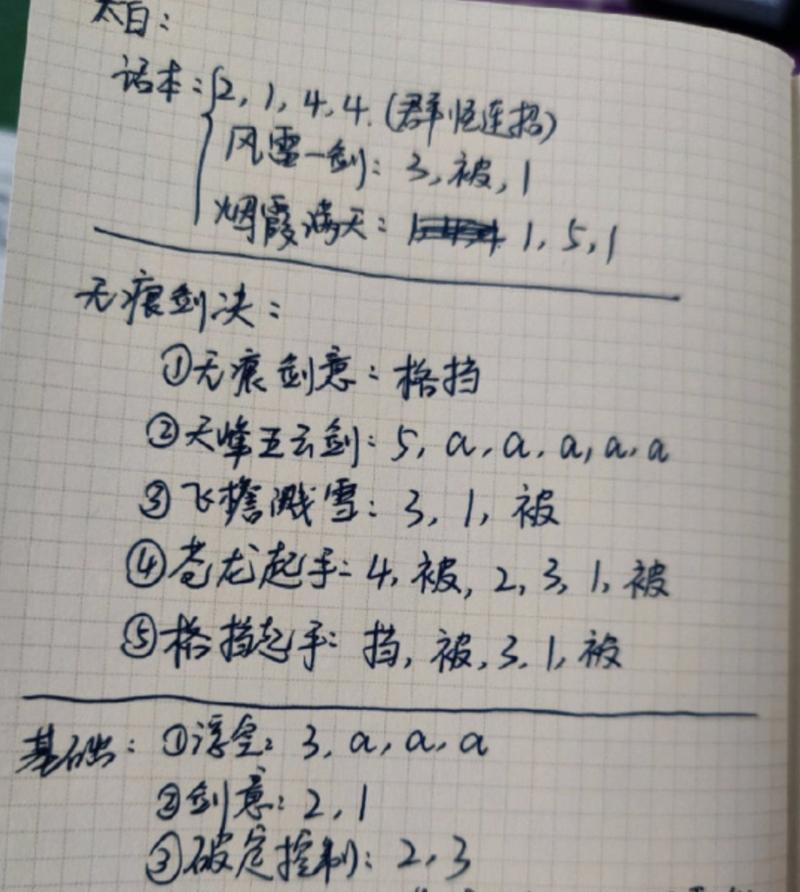 太白：
话本：{2, 1, 4, 4. (群怪连招)
风雪一剑：3, 被, 1
烟霞满天：1, 5, 1
无痕剑决：
①无痕剑意：格挡
②天峰五云剑：5, a, a, a, a, a
③飞檐溅雪：3, 1, 被
④苍龙起手：4, 被, 2, 3, 1, 被
⑤格挡起手：挡, 被, 3, 1, 被
基础：①浮空：3, a, a, a
②剑意：2, 1
③破定控制：2, 3